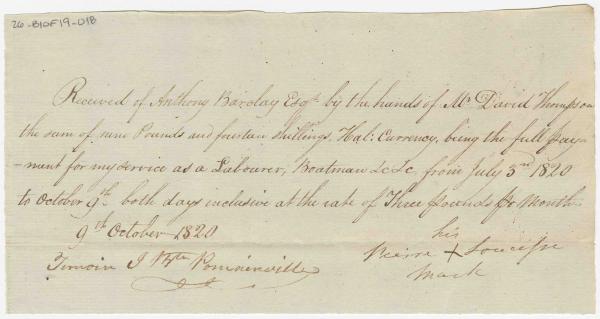 26-B10F19-D1B
Received of Anthony Barclay Esqr. by the hands of Mr. David Thompson
the sum of nine Pounds and fourteen shillings, Hal: Currency, being the full pay-
-ment for my service as a Labourer, Boatman &c &c, from July 3rd 1820
to October 9th both days inclusive at the rate of Three pounds pr Month
9th October 1820
his
Pierre +
mark
Temoin J Bte Pominville